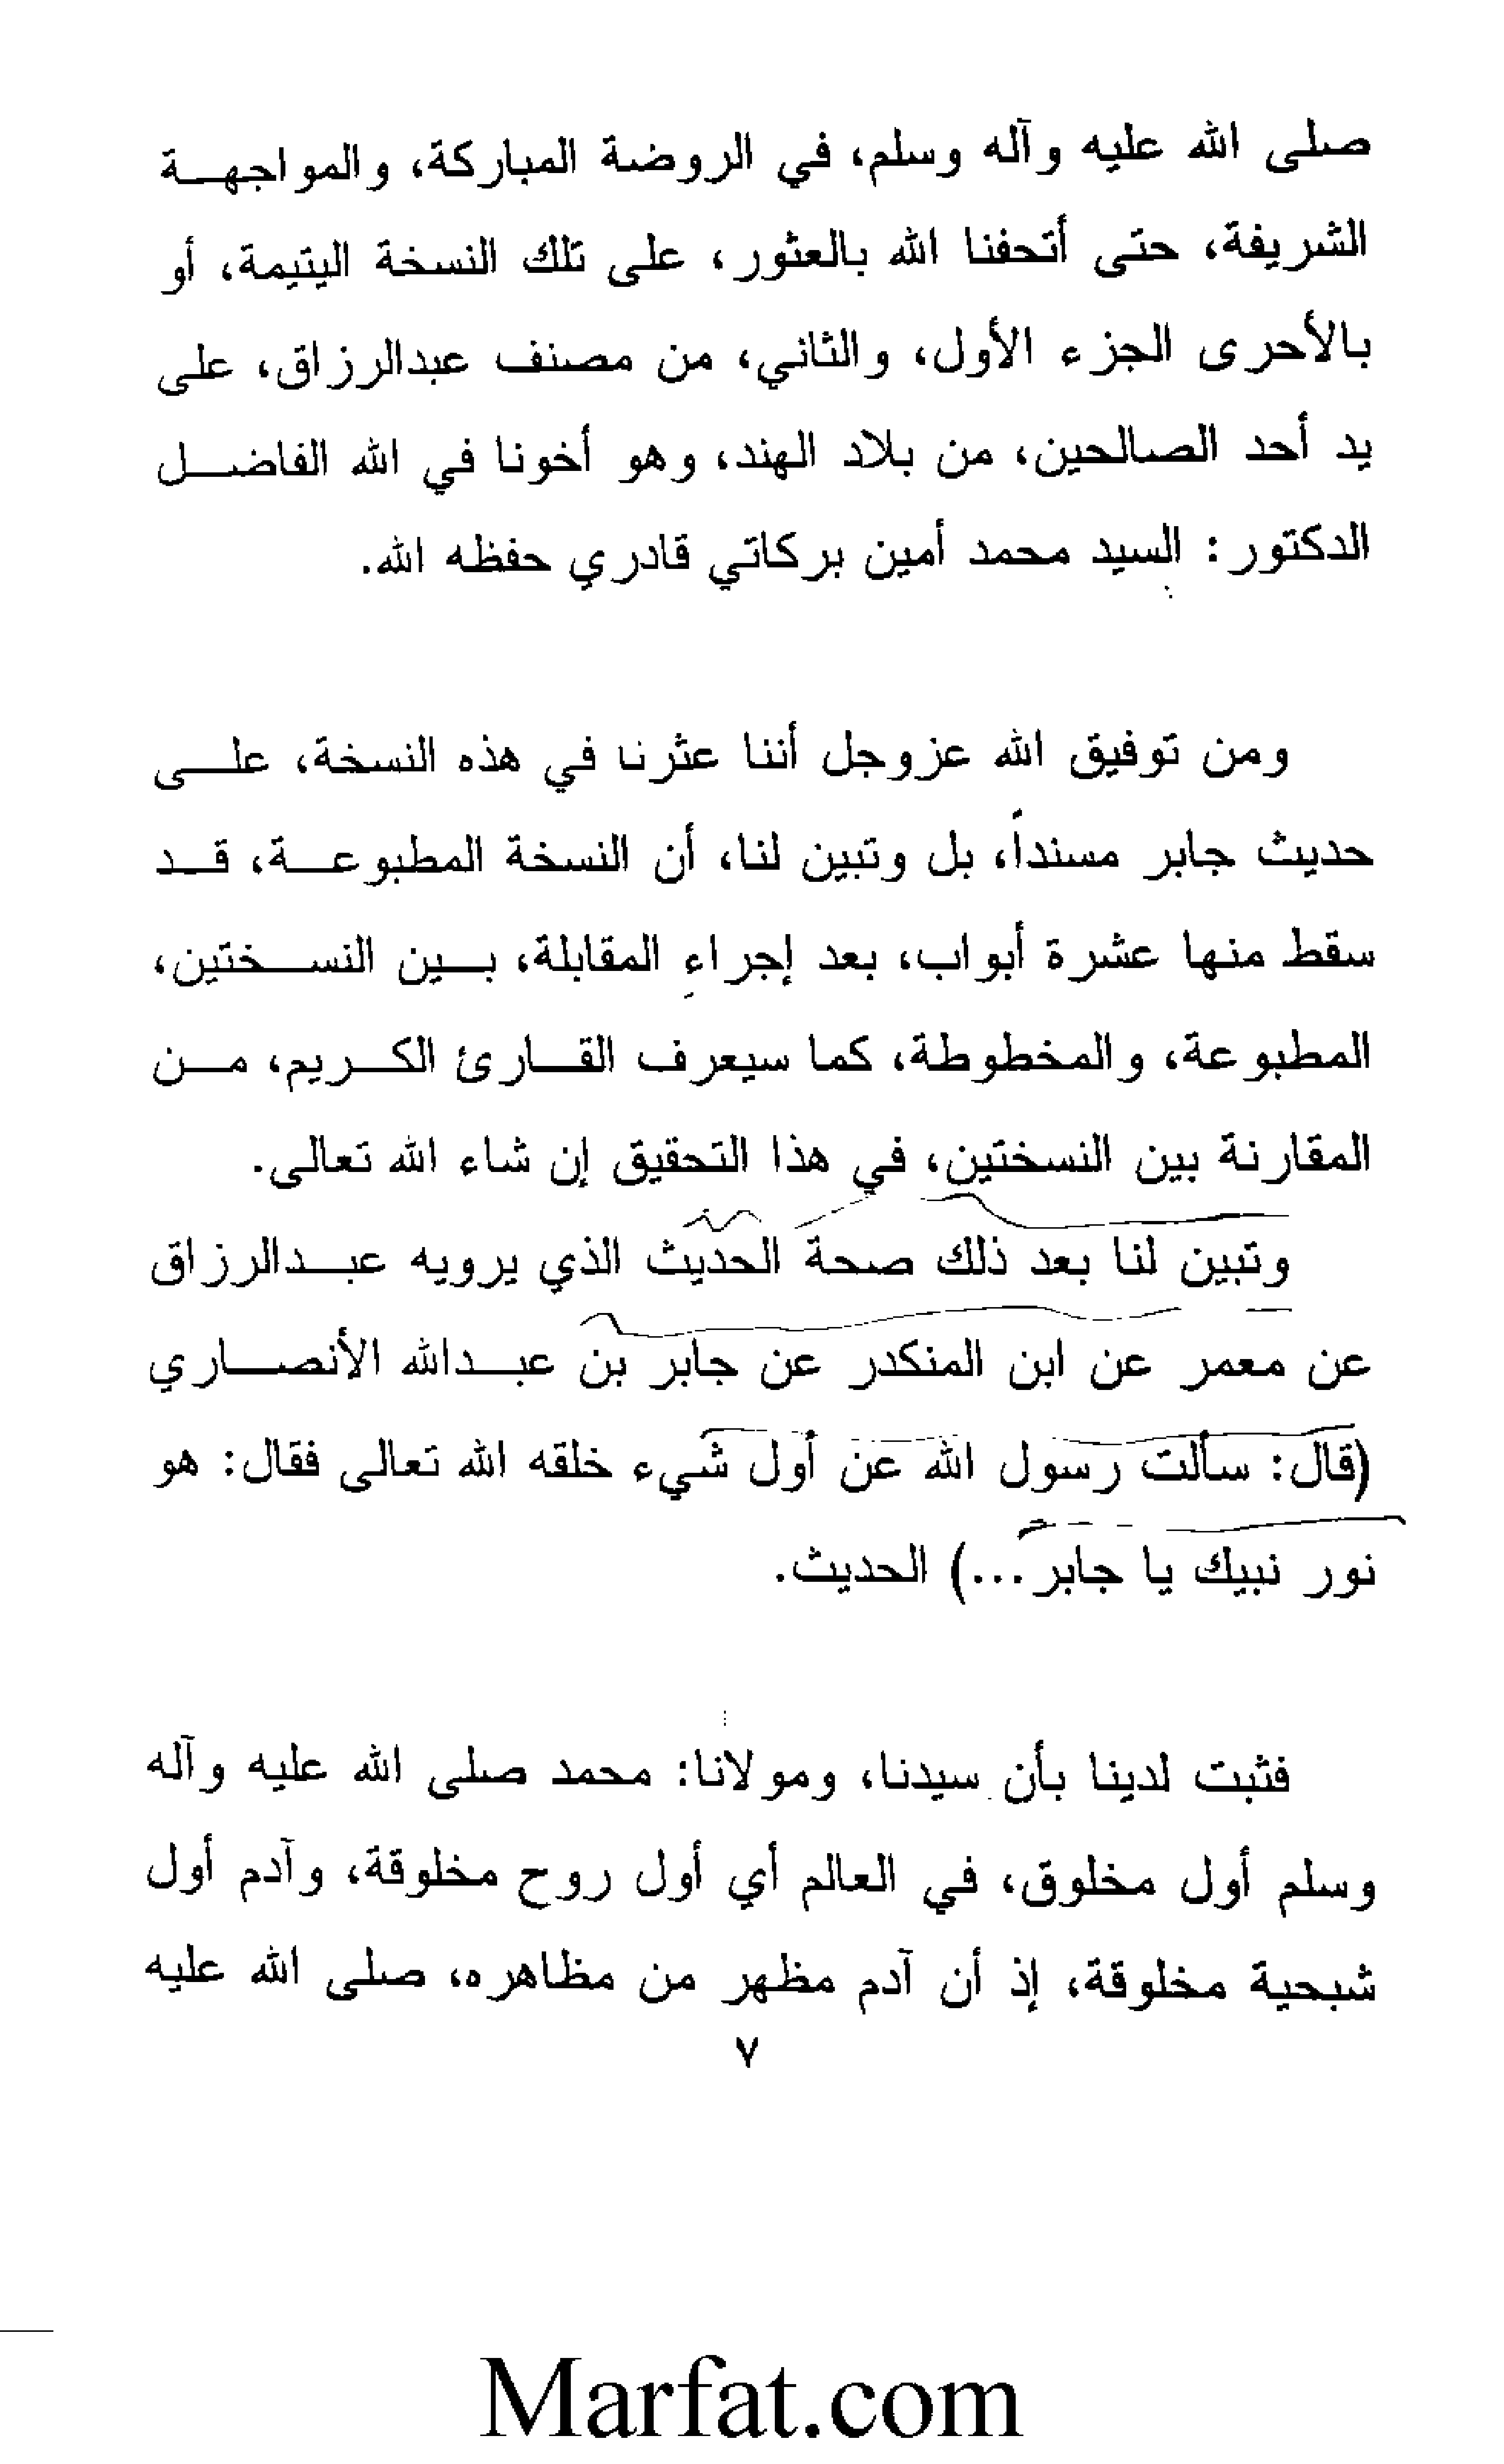 صلى الله عليه وآله وسلم، في الروضة المباركة، والمواجهـة
الشريفة، حتى أتحفنا الله بالعثور، على تلك النسخة اليتيمة، أو
بالأحرى الجزء الأول، والثاني، من مصنف عبدالرزاق، على
يد أحد الصالحين، من بلاد الهند، وهو أخونا في الله الفاضـل
الدكتور: السيد محمد أمين بركاتي قادري حفظه الله.
ومن توفيق الله عزوجل أننا عثرنا في هذه النسخة، علـى
حديث جابر مسنداً، بل وتبين لنا، أن النسخة المطبوعـة، قـد
سقط منها عشرة أبواب، بعد إجراء المقابلة، بـين النسـختين،
المطبوعة، والمخطوطة، كما سيعرف القـارئ الكـريم، مـن
المقارنة بين النسختين، في هذا التحقيق إن شاء الله تعالى.
وتبين لنا بعد ذلك صحة الحديث الذي يرويه عبـدالرزاق
عن معمر عن ابن المنكدر عن جابر بن عبـدالله الأنصـاري
(قال: سألت رسول الله عن أول شيء خلقه الله تعالى فقال: هو
نور نبيك يا جابر...) الحديث.
فثبت لدينا بأن سيدنا، ومولانا: محمد صلى الله عليه وآله
وسلم أول مخلوق، في العالم أي أول روح مخلوقة، وآدم أول
شبحية مخلوقة، إذ أن آدم مظهر من مظاهره، صلى الله عليه
٧
Marfat.com